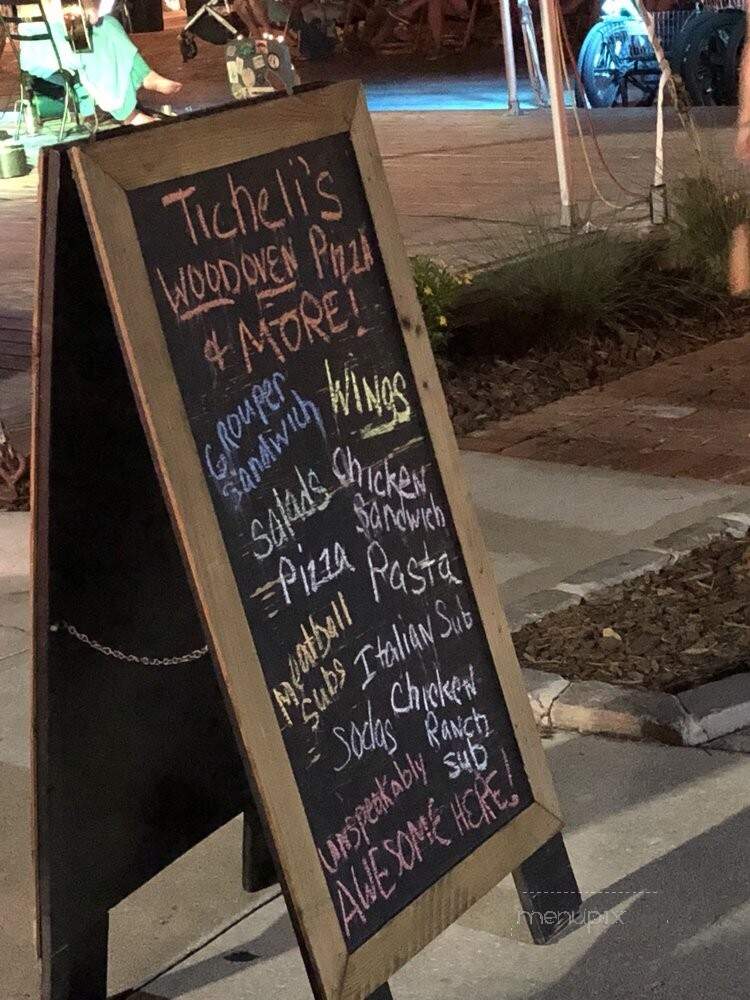 Ticheli's
WOODOVEN Pizza
& MORE!
Grouper
Sandwich
WINGS
Salads
Chicken
Sandwich
Pizza
Pasta
Meatball
Subs
Italian Sub
Sodas
Chicken
Ranch
Sub
Unspeakably
AWESOME HERE!
menupix